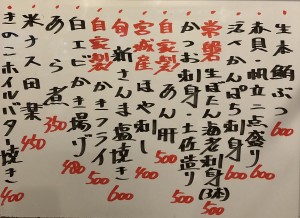 生本鮪ぶつ 600
赤貝・帆立二点盛り 600
活〆かんぱち刺身 600
常磐 生ぼたん海老刺身(3本) 600
かつお刺身・土佐造り 500
自家製 あん肝 500
宮城産 ほや刺し 400
旬 新さんま塩焼き 600
自家製 かきフライ 500
白エビかき揚げ 480
あら煮 350
米ナス田楽 450
きのこホイルバター焼き 400